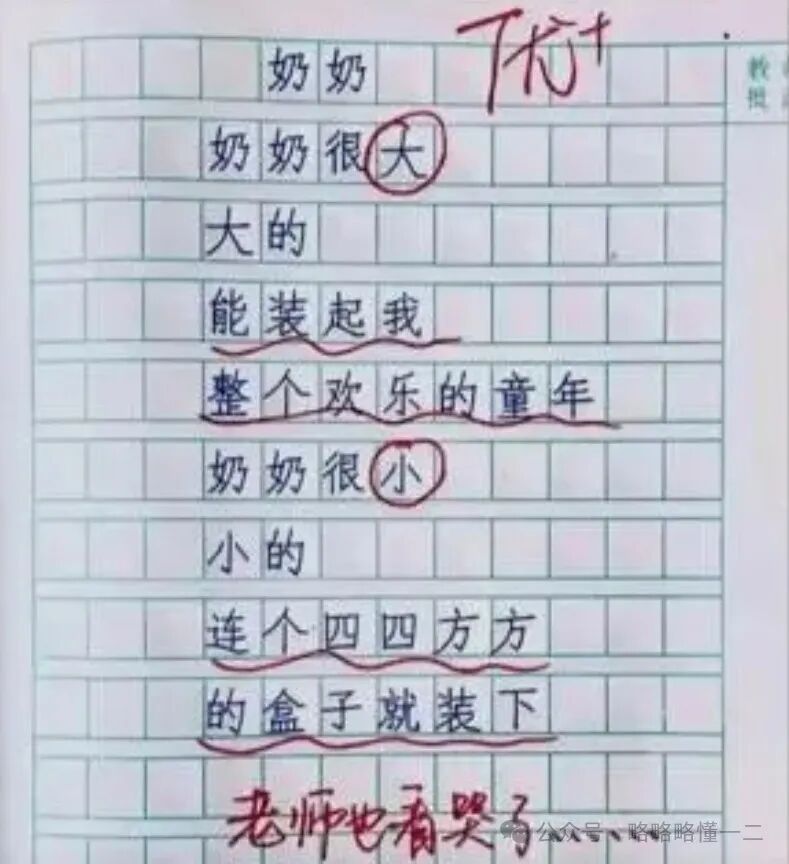 优+
教
奶奶
奶奶很大
大的
能装起我
整个欢乐的童年
奶奶很小
小的
连个四四方方
的盒子就装下
老师也看哭了......
公众号·略略略懂一二